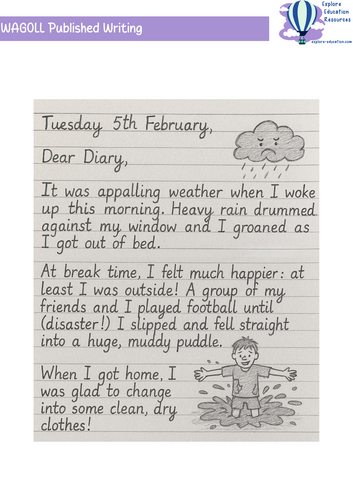 WAGOLL Published Writing
Explore
Education
Resources
explore-education.com
Tuesday 5th February,
Dear Diary,
It was appalling weather when I woke
up this morning. Heavy rain drummed
against my window and I groaned as
I got out of bed.
At break time, I felt much happier: at
least I was outside! A group of my
friends and I played football until
(disaster!) I slipped and fell straight
into a huge, muddy puddle.
When I got home, I
was glad to change
into some clean, dry
clothes!